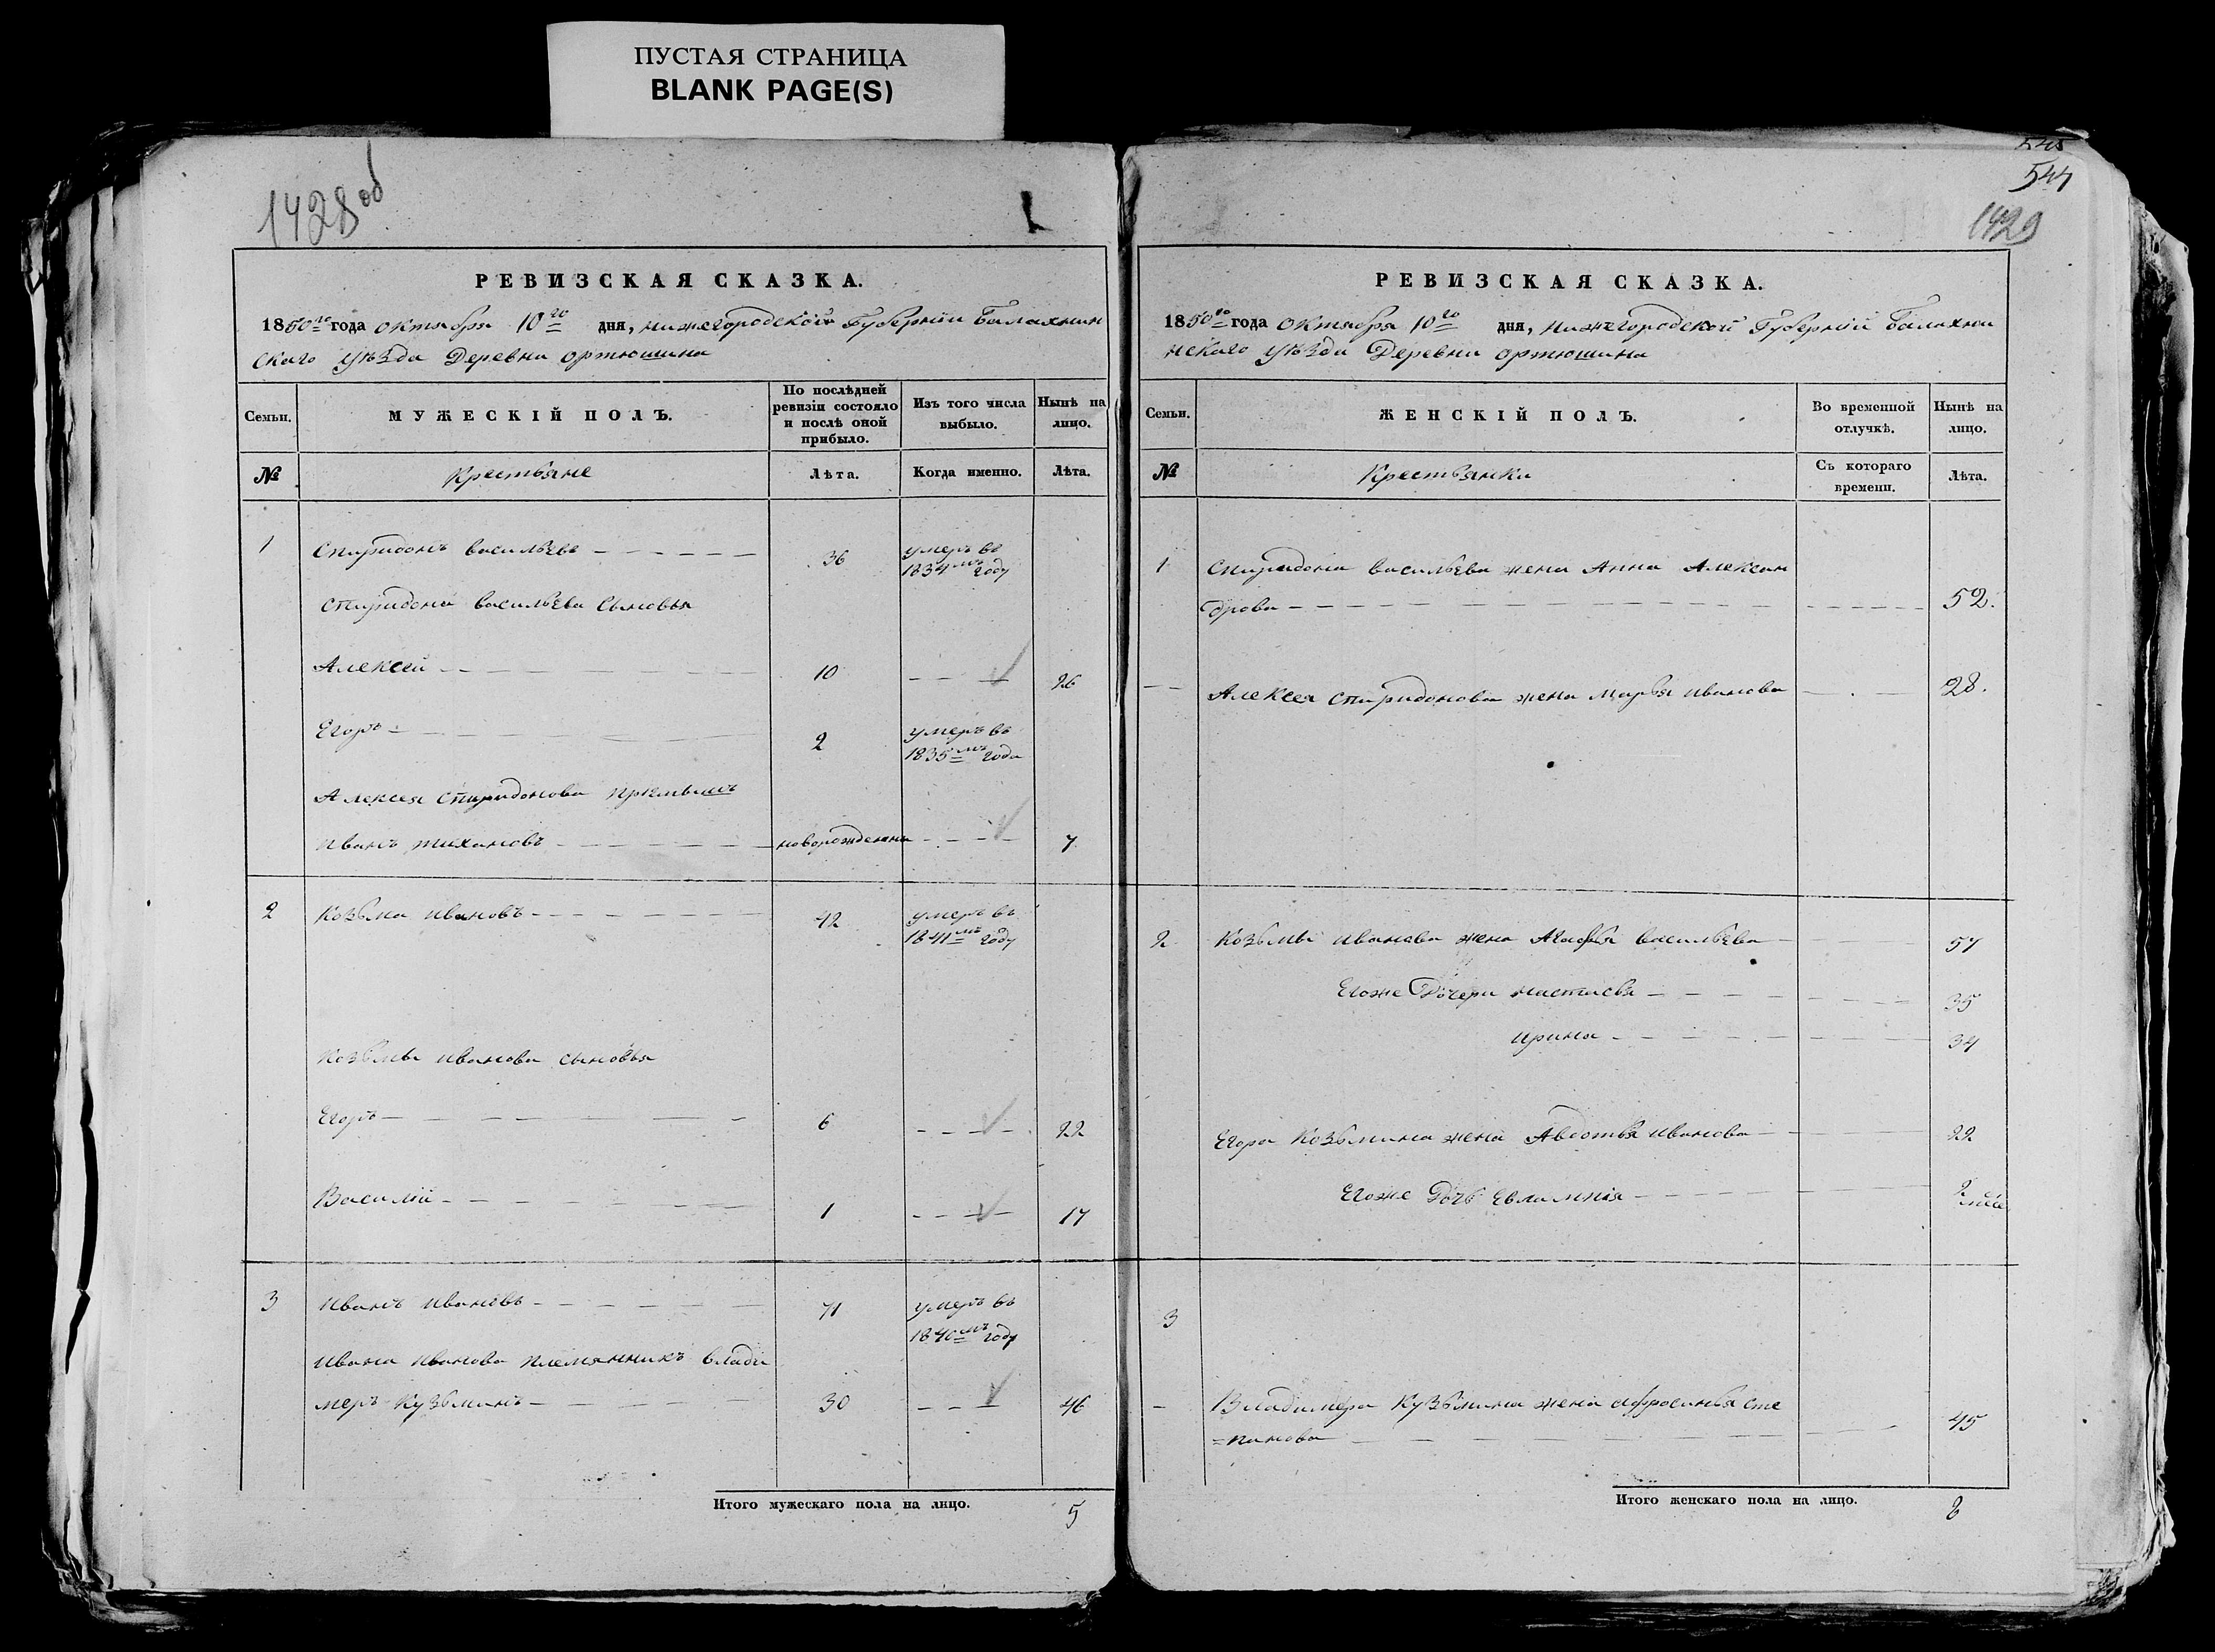 ПУСТАЯ СТРАНИЦА
BLANK PAGE(S)
1428 об
544
1429
РЕВИЗСКАЯ СКАЗКА.
1850го года октября 10го дня, нижегородской Губернии Балахнин
скаго уѣзда Деревни ортюшина
Семьи. МУЖЕСКІЙ ПОЛЪ. По послѣдней ревизіи состояло и послѣ оной прибыло. Изъ того числа выбыло. Нынѣ на лицо.
№ Крестьяне Лѣта. Когда именно. Лѣта.
1 Спиридонъ васильевъ 36 умеръ въ 1834мъ году
Спиридона васильева сыновья
Алексей 10 26
Егоръ 2 умеръ въ 1835мъ года
Алексея Спиридонова приемышъ
иванъ тихановъ новорожденны 7
2 Козьма ивановъ 42 умеръ въ 1841мъ году
Козьмы иванова сыновья
Егоръ 6 22
Василій 1 17
3 иванъ ивановъ 71 умеръ въ 1840мъ году
ивана иванова племянникъ влади
меръ Кузьминъ 30 46
Итого мужескаго пола на лицо. 5
РЕВИЗСКАЯ СКАЗКА.
1850го года октября 10го дня, нижегородской Губернии Балахни
нскаго уѣзда Деревни ортюшина
Семьи. ЖЕНСКІЙ ПОЛЪ. Во временной отлучкѣ. Нынѣ на лицо.
№ Крестьянки Съ котораго времени. Лѣта.
1 Спиридона васильева жена Анна Алексан
дрова 52.
Алексея спиридонова жена марья иванова 28.
2 Козьмы иванова жена Агафья васильева 57
Егоже Дочери настасья 35
ирина 34
Егора Козьмина жена Авдотья иванова 22
Егоже Дочь Евлампия 2
3
Владимера Кузьмина жена афросинья сте
=панова 45
Итого женскаго пола на лицо. 8